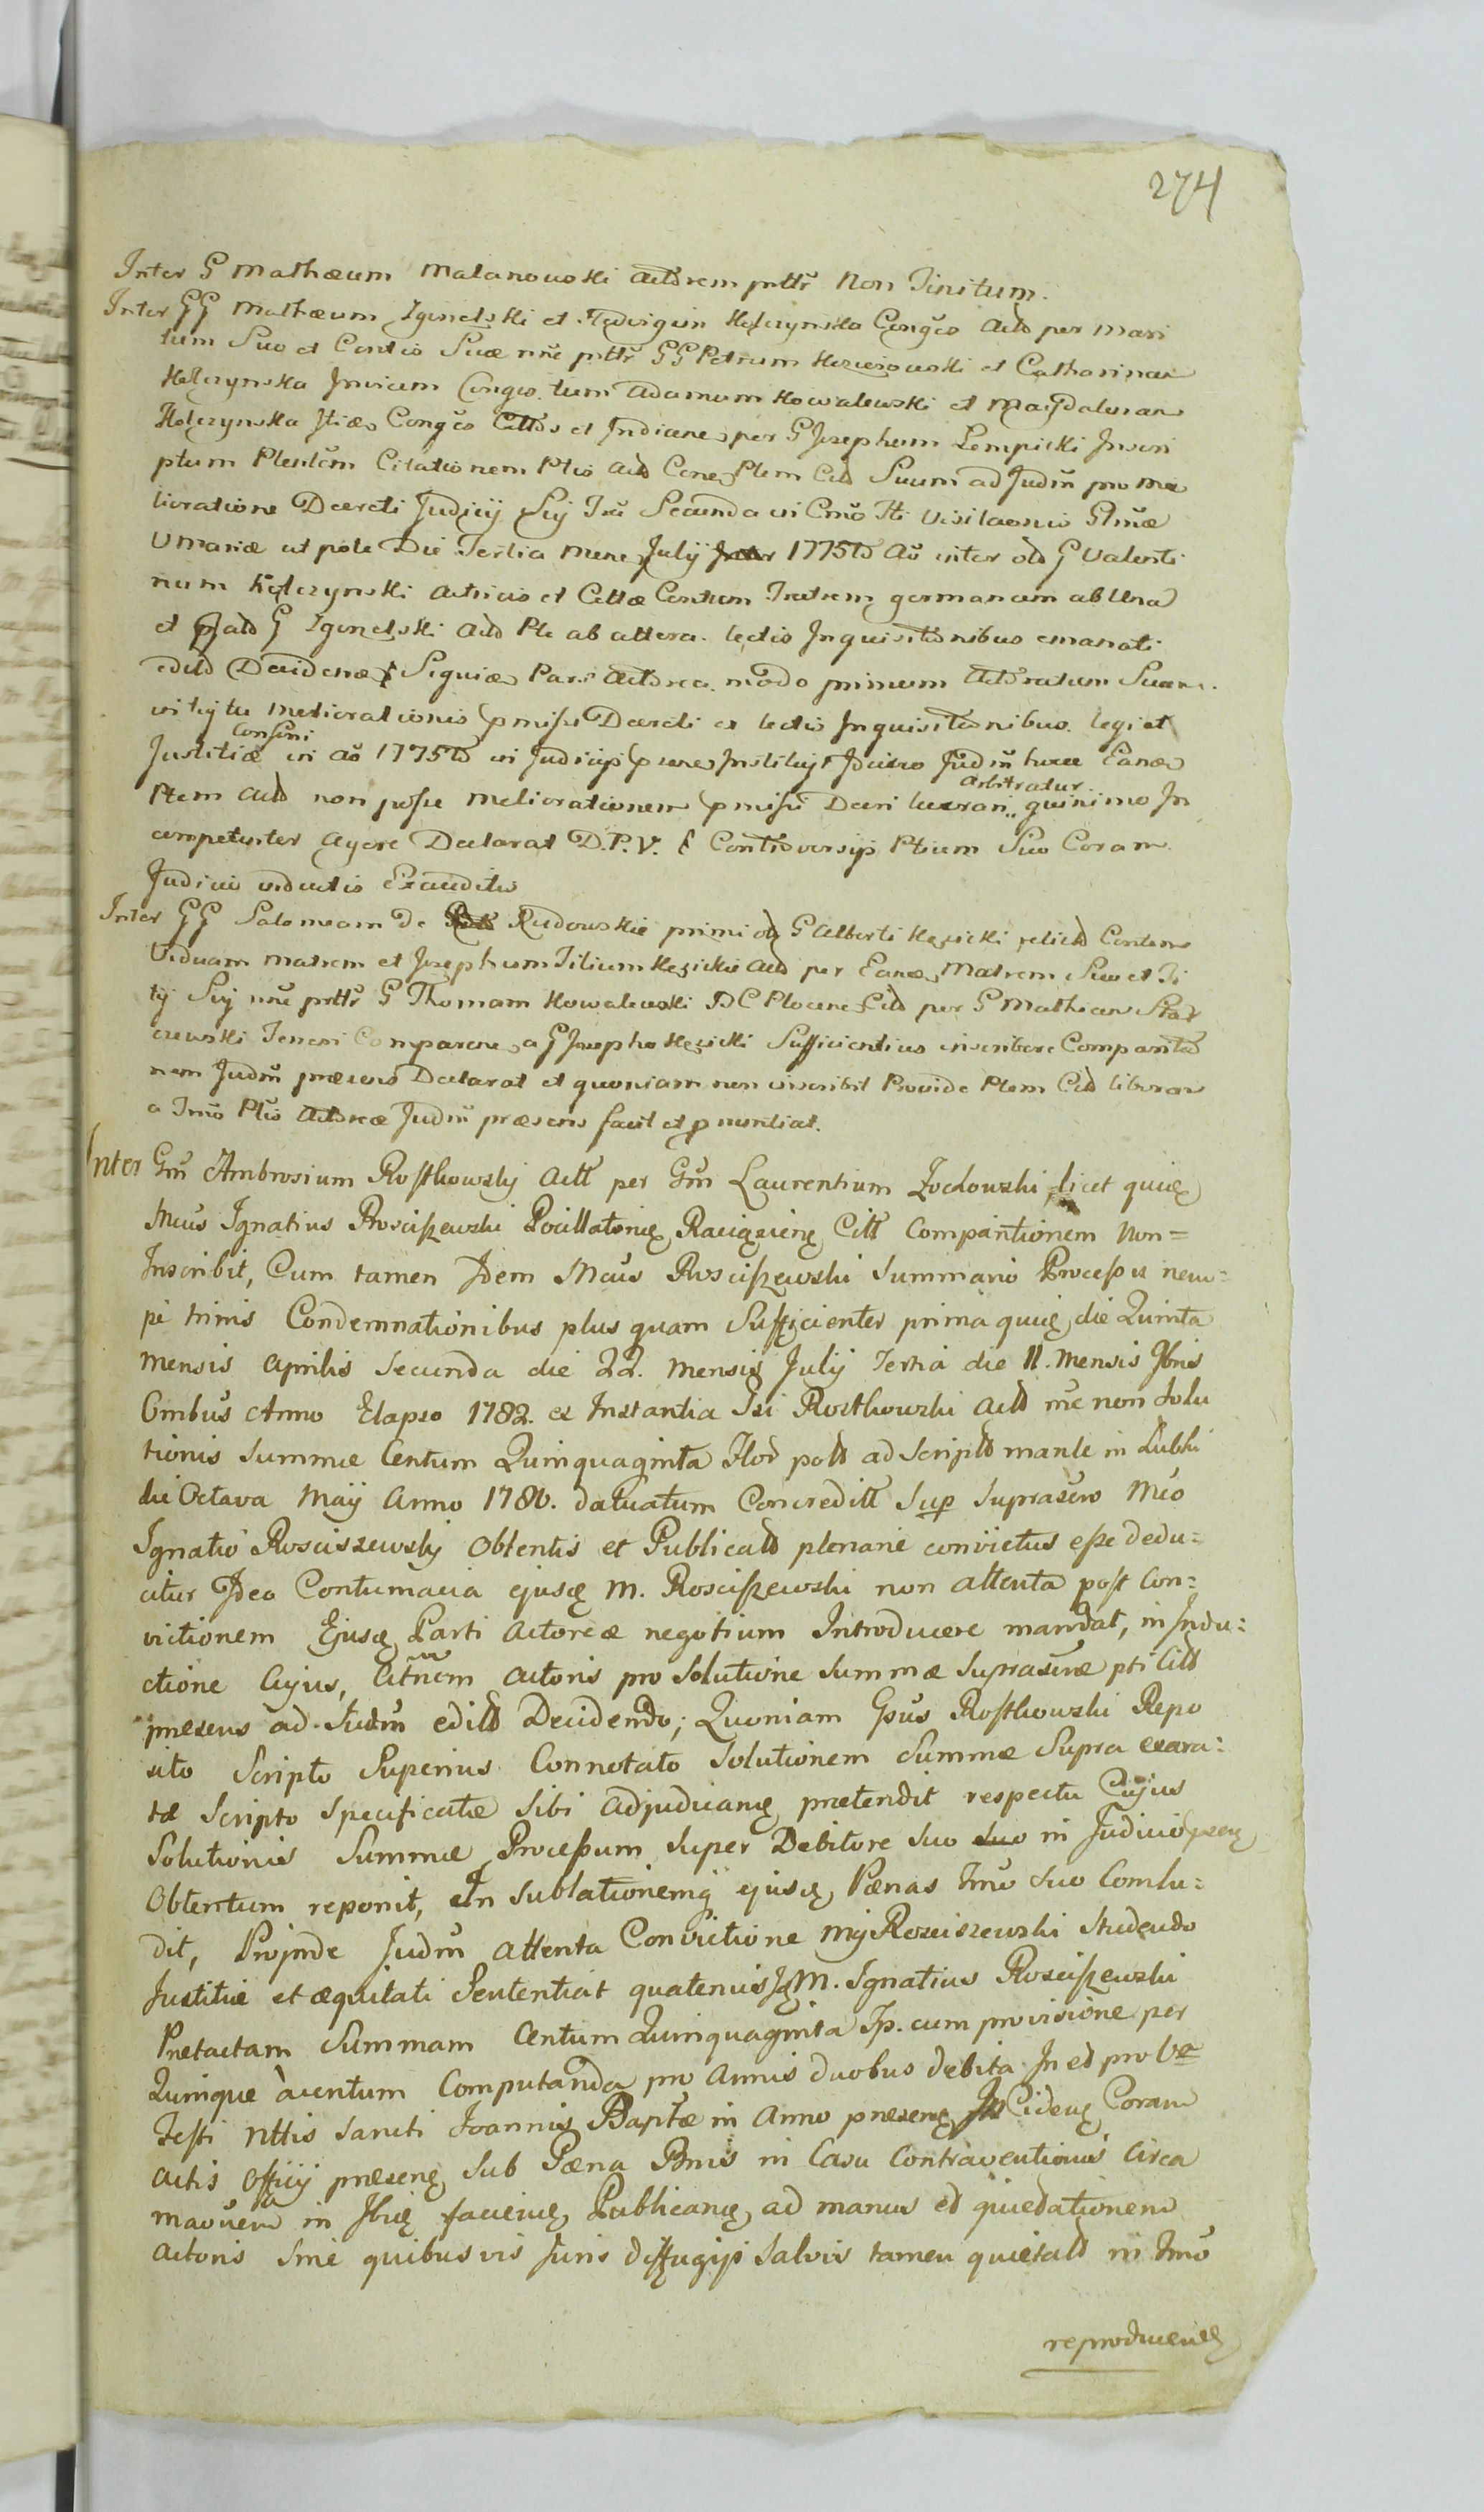 274
Inter G Mathæum Malanowski Actorem prttr Non Finitum.
Inter GG Mathæum Zginelski et Hedvigim Kelczynska Congeo Actd per Mari
tum Suo et Contis Suæ nne prttr GG Petrum et Catharinam
Kelczynska Invicem Congeo. tum Adamum Kowalewski et Magdalenam
Kelczynska Itiæ Congeo Cttos et Indicene per G Josephum Lempicki Inscri
ptum Plenlem Citationem Ptis Actd Cene Ptem Citd Suum ad Judm pro me
lioratione Decreti Judicij Sij Secunda in Cmo Sti Visitaonis Btmæ
V Mariæ ut pote Die Tertia Mene Julij 1775to Ao inter old G Valenti
num Kelczynski Actricis et Cttæ Contum Fratrem germanum ab Una
et G Zginelski Actd Pte ab altera. lectis Inquisitionibus emanati
edild Decidene Siquiæ Pars Actorea. modo primum Actoratum Suum
vi meliorationis pmissi Decreti ex lectis Inquisitionibus. legi et
consini
Justitiæ in ao 1775to in Judicijs psene Instituit Judm huce Eane
arbitratur
Ptem Actd non posse meliorationem pmissi Decri lucrari,, quinimo In
competenter Agere Declarat D.P.V. & Controversijs Ptium Suo Coram
Judicio inductis Exauditis
Inter GG Salomeam de Rudowskie primi old G Alberti Kęsicki relictd Contem
Viduam Matrem et Josephum Filium Kęsickie Actd per Eane Matrem Suo et Fi
lij Sij nne prttr G Thomam Kowalewski BC Plocene Citd per G Mathiam
czewski Teneri Comparere a G Josepho Kęsicki Sufficientius inscribere Comparitio
nem Judm præsens Declarat et quoniam non inscribit Proinde Ptem Citd liberam
a Tmo Ptis Actoreæ Judm præsens facit et pnuntiat.
Inter Gm Ambrosium Rosthowskij Actt per Gm Laurentium Zochowski, licet quię
Mcus Ignatius Rosciszewski Pocillatorię, Raciązienę Citt Comparitionem Non=
Inscribit, Cum tamen Idem Mcus Rosciszewski Summario Processu nem=
pè trinis Condemnationibus plus quam Sufficienter prima quię die Quinta
mensis Aprilis Secunda die 22. Mensis Julij Tertia die 11. Mensis Xbris
Ombus Anno Elapso 1782. ex Instantia Isi Rosthowski Actd nne non Solu
tionis Summæ Centum Quinquaginta Flor pold ad Scriptd manle in Lubki
die Octava Maij Anno 1780. datuatum Concreditt Sup Suprascro Mco
Ignatio Rosciszewskij Obtentis et Publicatd plenarie convictus esse dedu=
citur Ideo Contumacia ejusę M. Rosciszewski non attenta post Con=
victionem Ejusę Parti Actoreæ negotium Introducere mandat, in Indu=
ctione Cujus, Citnem Actoris pro Solutione Summæ Suprascræ pti Citd
præsens ad Judm editd Decidendo; Quoniam Gsus Rosthowski Repo
sito Scripto Superius Connotato Solutionem Summæ Supra exara=
tæ Scripto Specificatæ Sibi adjudicanę prætendit respectu Cujus
Solutionis Summæ Processum Super Debitore Suo suo in Judicio psenę
Obtentum reponit, In Sublationemq ejusę Pænas Tmo Suo Conclu=
dit, Proinde Judm Attenta Convictione Mij Rosciszewski Studendo
Justitiæ et æquitati Sententiat quatenus Iq M. Ignatius Rosciszewski
Prætactam Summam Centum Quinquaginta Fp. cum provisione per
Quinque à centum Computanda pro Annis duobus debita In et pro
Festi Nttis Sancti Joannis Baptæ in Anno præsenę Cidenę Coram
Actis Officij præsenę Sub Pæna Bnis in Casu Contraventionis Circa
in Xbrię facienę Publicanę ad manus et quiedationem
Actoris Sine quibusvis Juris diffugijs Salvis tamen quietatd in Tmo
reproducenę